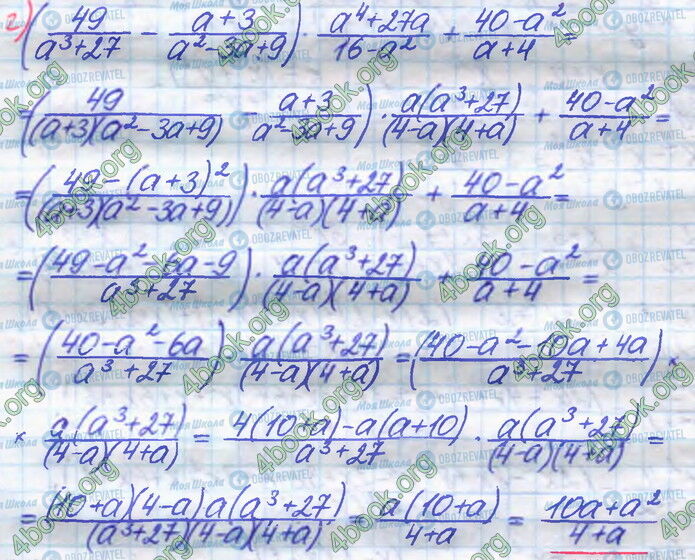 г) (49/(a³+27) - (a+3)/(a²-3a+9)) · (a⁴+27a)/(16-a²) + (40-a²)/(a+4) =
= (49/((a+3)(a²-3a+9)) - (a+3)/(a²-3a+9)) · (a(a³+27))/((4-a)(4+a)) + (40-a²)/(a+4) =
= ((49-(a+3)²)/((a+3)(a²-3a+9))) · (a(a³+27))/((4-a)(4+a)) + (40-a²)/(a+4) =
= ((49-a²-6a-9)/(a³+27)) · (a(a³+27))/((4-a)(4+a)) + (40-a²)/(a+4) =
= ((40-a²-6a)/(a³+27)) · (a(a³+27))/((4-a)(4+a)) = ((40-a²-10a+4a)/(a³+27)) ×
× (a(a³+27))/((4-a)(4+a)) = (4(10+a)-a(a+10))/(a³+27) · (a(a³+27))/((4-a)(4+a)) =
= ((10+a)(4-a)a(a³+27))/((a³+27)(4-a)(4+a)) = (a(10+a))/(4+a) = (10a+a²)/(4+a)
4book.org
Моя Школа
OBOZREVATEL